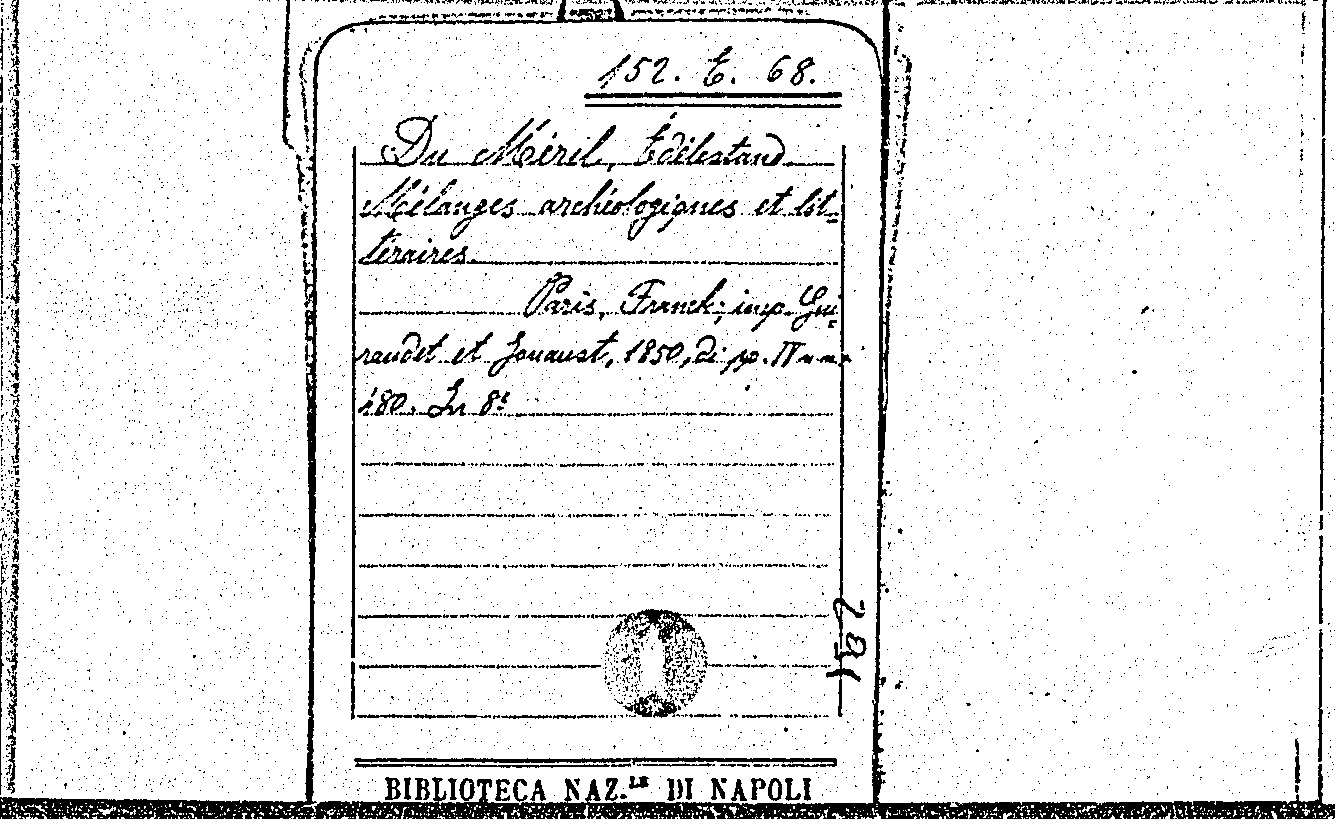 152. E. 68.
Du Méril, Édélestand.
Mélanges archéologiques et lit-
téraires.
Paris, Franck; imp. Gui-
raudet et Jouaust, 1850, di pp. IV
480. In 8º
281
BIBLIOTECA NAZ.LE DI NAPOLI